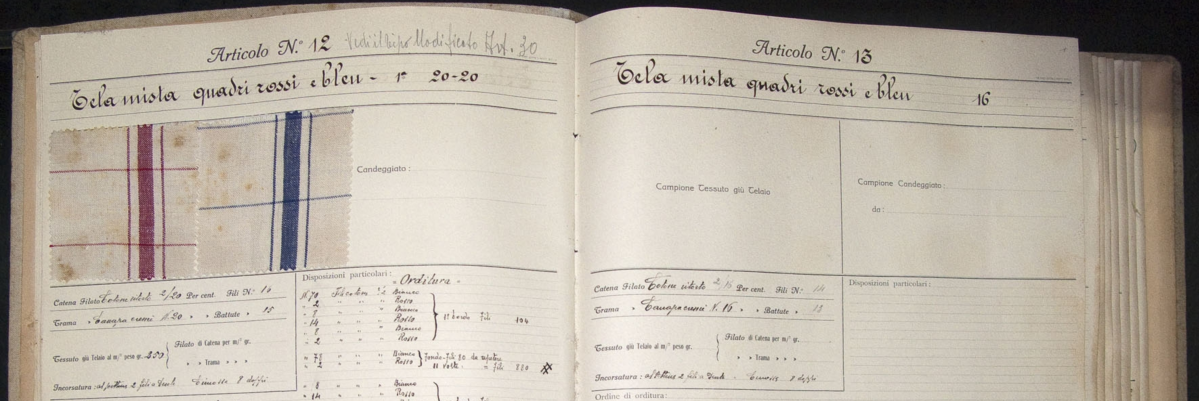 Articolo N.º 12 Vedi il tipo Modificato Art. 30
Tela mista quadri rossi e bleu - 1ª 20-20
Candeggiato:
Catena Filato 2/20 Per cent. Fili N.º 14
Trama " Canapa N.20 " " Battute " 15
Tessuto giù Telaio al m/² pesa gr. 250
Filato di Catena per m/² gr.
" " Trama " "
Incorsatura: al pettine 2 fili a Dente - 8 doppi
Disposizioni particolari:
- Orditura -
N. 70 Fil cotone Bianco
- 2 " " " Rosso
- 8 " " " Bianco
- 14 " " " Rosso
- 8 " " " Bianco
- 2 " " " Rosso
1º bordo fili 104
- 78 " " " Bianco
- 2 " " " Rosso
Fondo fili 80 da ripetere
11 volte " fili 880
- 8 " " " Bianco
- 14 " " " Rosso
Articolo N.º 13
Tela mista quadri rossi e bleu 16
Campione Tessuto giù Telaio
Campione Candeggiato:
da:
Catena Filato 2/16 Per cent. Fili N.º 14
Trama " Canapa N. 16 " " Battute " 13
Tessuto giù Telaio al m/² pesa gr.
Filato di Catena per m/² gr.
" " Trama " "
Incorsatura: al Pettine 2 fili a Dente - 8 doppi
Disposizioni particolari:
Ordine di orditura: